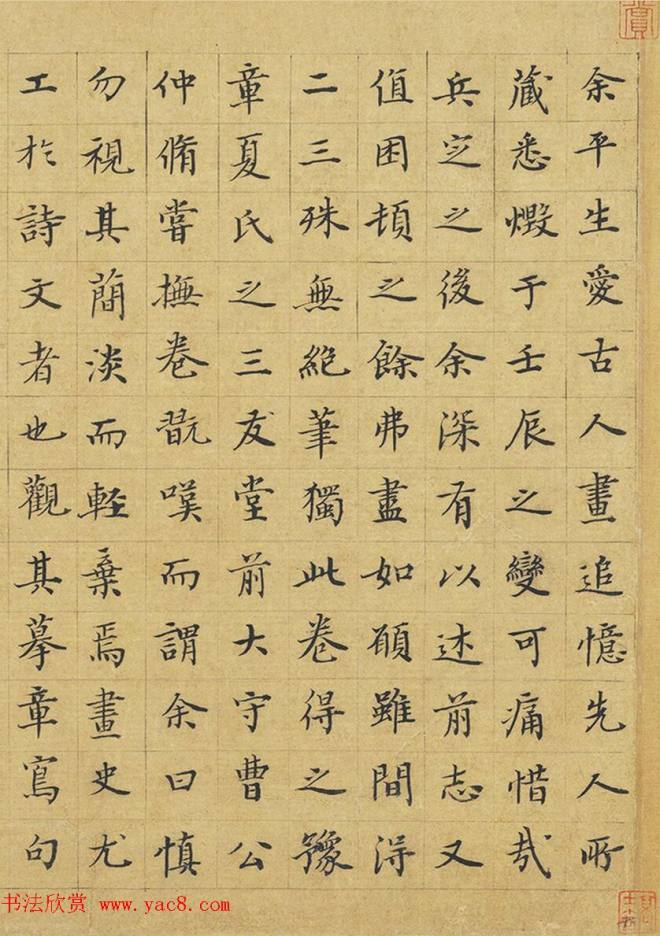 余平生愛古人畫追憶先人所
藏悉燬于壬辰之變可痛惜哉
兵定之後余深有以述前志又
值困頓之餘弗盡如願雖間得
二三殊無絶筆獨此卷得之豫
章夏氏之三友堂前大守曹公
仲脩嘗撫卷翫嘆而謂余曰慎
勿視其蕳淡而輕棄焉畫史尤
工於詩文者也觀其摹章寫句
賞
书法欣赏 www.yac8.com